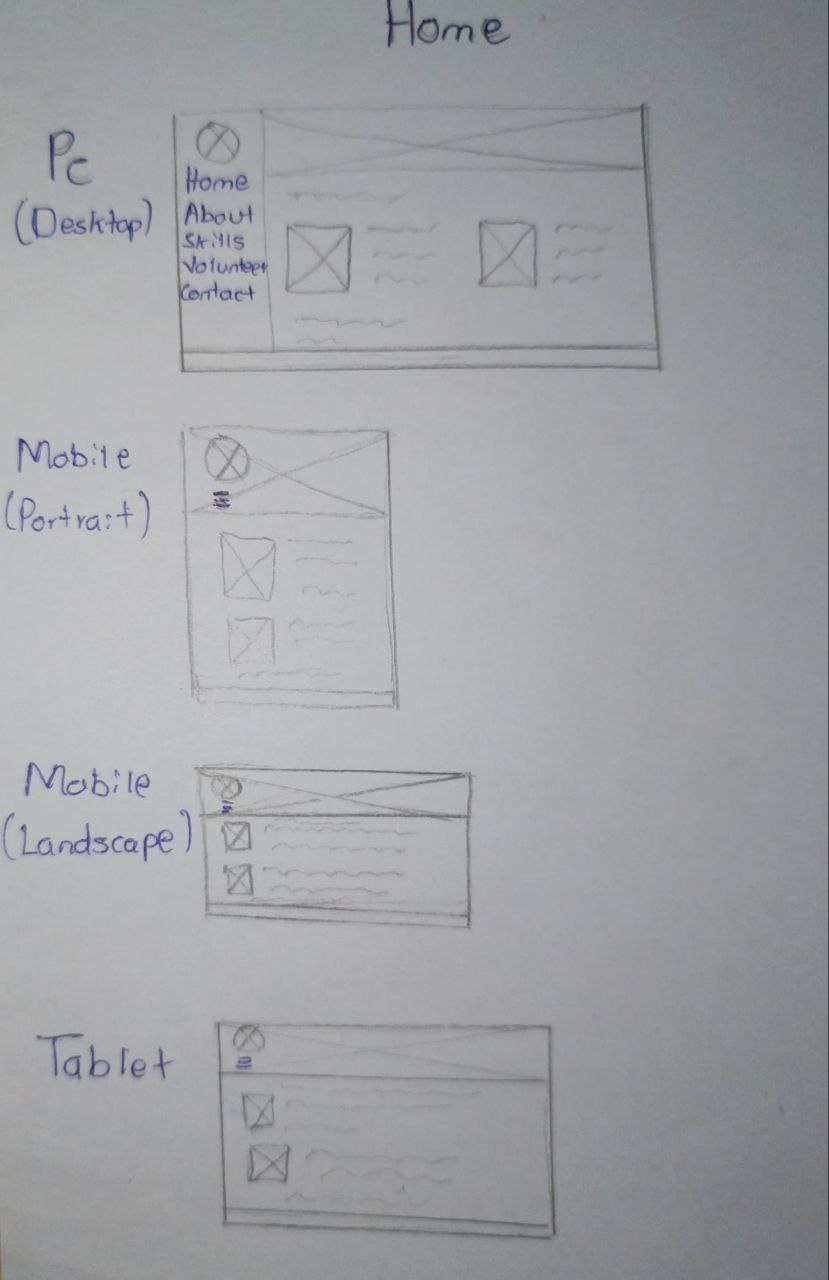 Home
PC
(Desktop)
Home
About
Skills
Volunteer
Contact
Mobile
(Portrait)
Mobile
(Landscape)
Tablet